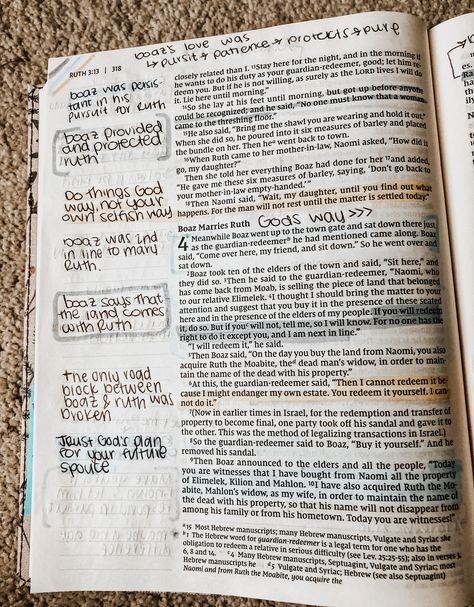 boaz's love was
↳ pursit → patience → protects → pure
RUTH 3:13 | 318
boaz was persis-
tant in his
pursuit for Ruth
boaz provided
and protected
ruth
Do things God
way, not your
own selfish way
boaz was 2nd
in line to marry
Ruth.
boaz says that
the land comes
with Ruth
the only road
block between
boaz & ruth was
broken
Trust God's plan
for your future
spouce
closely related than I. 13Stay here for the night, and in the morning if
he wants to do his duty as your guardian-redeemer, good; let him re-
deem you. But if he is not willing, as surely as the LORD lives I will do
it. Lie here until morning."
14So she lay at his feet until morning, but got up before anyone
could be recognized; and he said, "No one must know that a woman
came to the threshing floor."
15He also said, "Bring me the shawl you are wearing and hold it out."
When she did so, he poured into it six measures of barley and placed
the bundle on her. Then he a went back to town.
16When Ruth came to her mother-in-law, Naomi asked, "How did it
go, my daughter?"
Then she told her everything Boaz had done for her 17and added,
"He gave me these six measures of barley, saying, 'Don't go back to
your mother-in-law empty-handed.' "
18Then Naomi said, "Wait, my daughter, until you find out what
happens. For the man will not rest until the matter is settled today."
Boaz Marries Ruth Gods way >>>
4 Meanwhile Boaz went up to the town gate and sat down there just
as the guardian-redeemer b he had mentioned came along. Boaz
said, "Come over here, my friend, and sit down." So he went over and
sat down.
2Boaz took ten of the elders of the town and said, "Sit here," and
they did so. 3Then he said to the guardian-redeemer, "Naomi, who
has come back from Moab, is selling the piece of land that belonged
to our relative Elimelek. 4I thought I should bring the matter to your
attention and suggest that you buy it in the presence of these seated
here and in the presence of the elders of my people. If you will redeem
it, do so. But if you c will not, tell me, so I will know. For no one has the
right to do it except you, and I am next in line."
"I will redeem it," he said.
5Then Boaz said, "On the day you buy the land from Naomi, you also
acquire Ruth the Moabite, the d dead man's widow, in order to main-
tain the name of the dead with his property."
6At this, the guardian-redeemer said, "Then I cannot redeem it be-
cause I might endanger my own estate. You redeem it yourself. I can-
not do it."
7(Now in earlier times in Israel, for the redemption and transfer of
property to become final, one party took off his sandal and gave it to
the other. This was the method of legalizing transactions in Israel.)
8So the guardian-redeemer said to Boaz, "Buy it yourself." And he
removed his sandal.
9Then Boaz announced to the elders and all the people, "Today
you are witnesses that I have bought from Naomi all the property
of Elimelek, Kilion and Mahlon. 10I have also acquired Ruth the Mo-
abite, Mahlon's widow, as my wife, in order to maintain the name of
the dead with his property, so that his name will not disappear from
among his family or from his hometown. Today you are witnesses!"
a 15 Most Hebrew manuscripts; many Hebrew manuscripts, Vulgate and Syriac she
b 1 The Hebrew word for guardian-redeemer is a legal term for one who has the
obligation to redeem a relative in serious difficulty (see Lev. 25:25-55); also in verses 3,
6, 8 and 14. c 4 Many Hebrew manuscripts, Septuagint, Vulgate and Syriac; most
Hebrew manuscripts he d 5 Vulgate and Syriac; Hebrew (see also Septuagint)
Naomi and from Ruth the Moabite, you acquire the